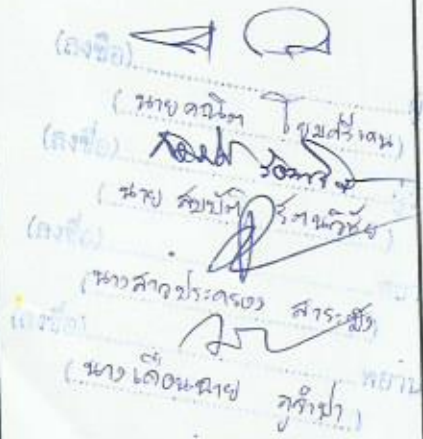 (ลงชื่อ)
(นายคณิต โยมศรีเคน)
(ลงชื่อ)
(นายสมบัติ รัตนวิชัย)
(ลงชื่อ)
(นางสาวประครอง สาระมัง)
(ลงชื่อ) พยาน
(นางเดือนฉาย ภูจำปา)